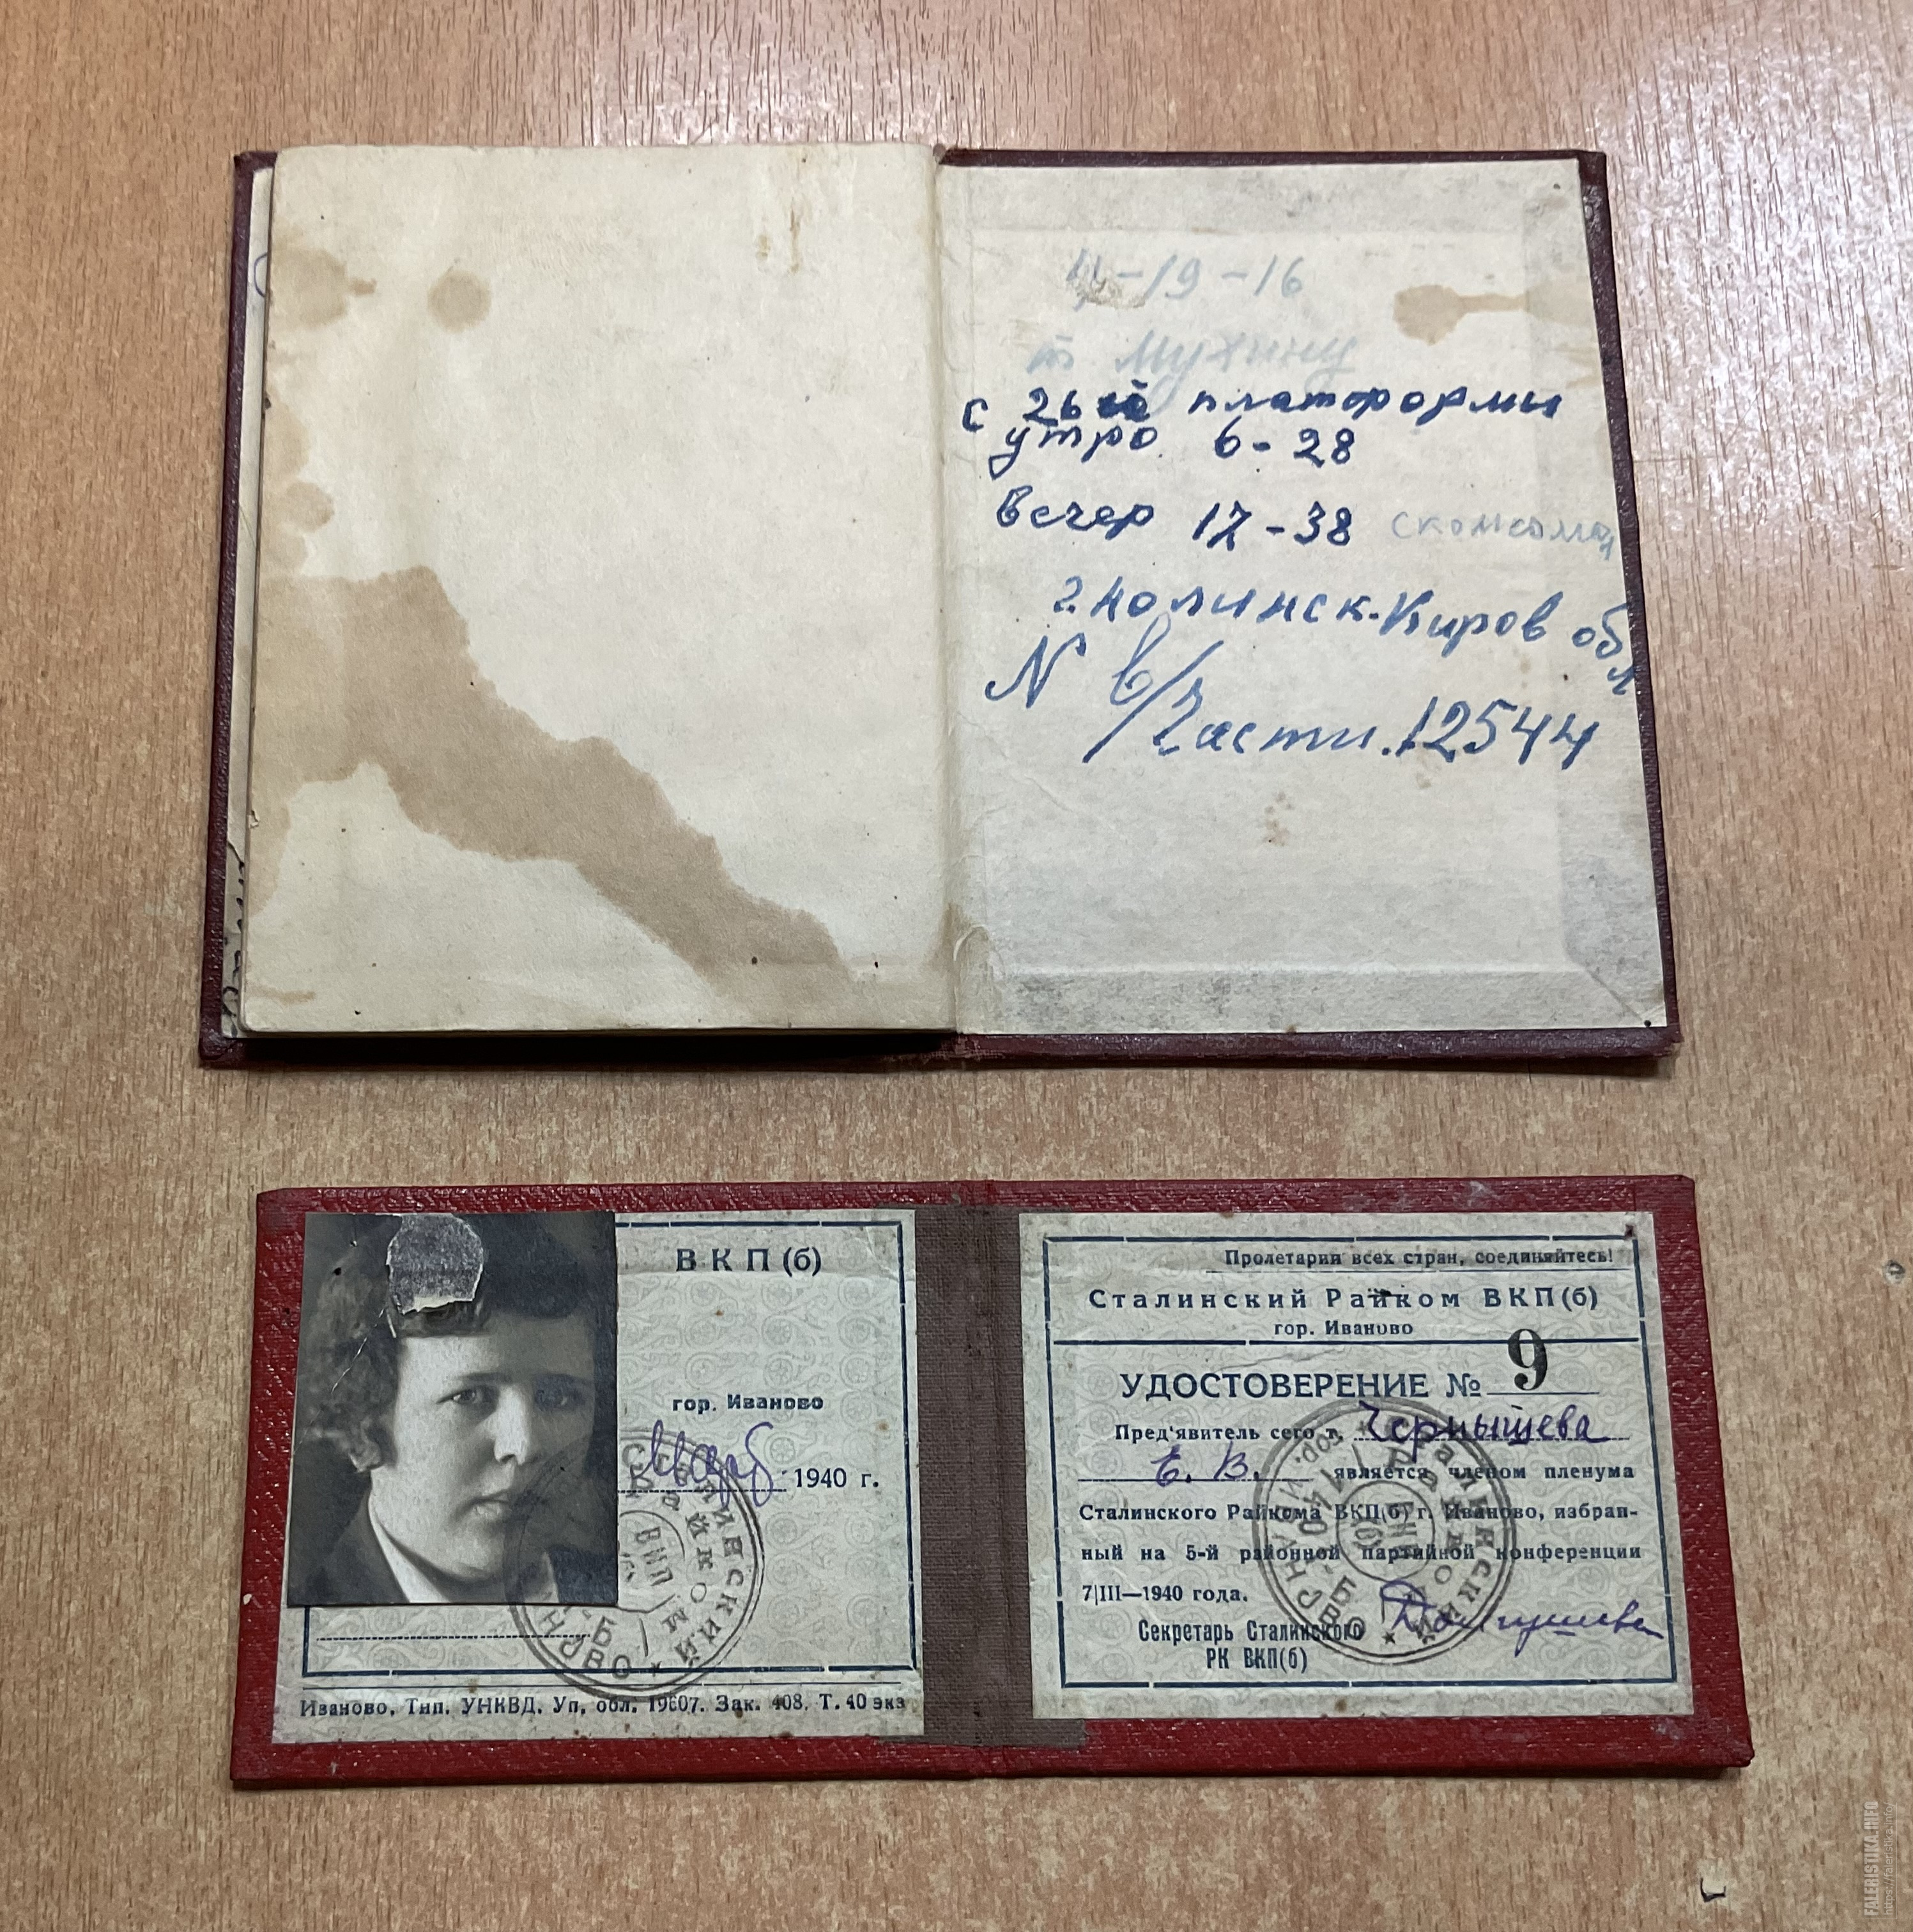 4-19-16
т Мухину
с 26 ой платформы
утро 6-28
Вечер 17-38
г. Нолинск. Киров обл
N в/Части. 12544
ВКП(б)
гор. Иваново
1940 г.
Иваново, Тип. УНКВД. Уп. обл. 19607. Зак. 408. Т. 40 экз
Пролетарии всех стран, соединяйтесь!
Сталинский Райком ВКП(б)
гор. Иваново
УДОСТОВЕРЕНИЕ № 9
Пред'явитель сего т. Чернышева
Е. В. является членом пленума
Сталинского Райкома ВКП(б) г. Иваново, избран-
ный на 5-й районной партийной конференции
7|III—1940 года.
Секретарь Сталинского
РК ВКП(б)
FALERISTIKA.INFO
https://faleristika.info/